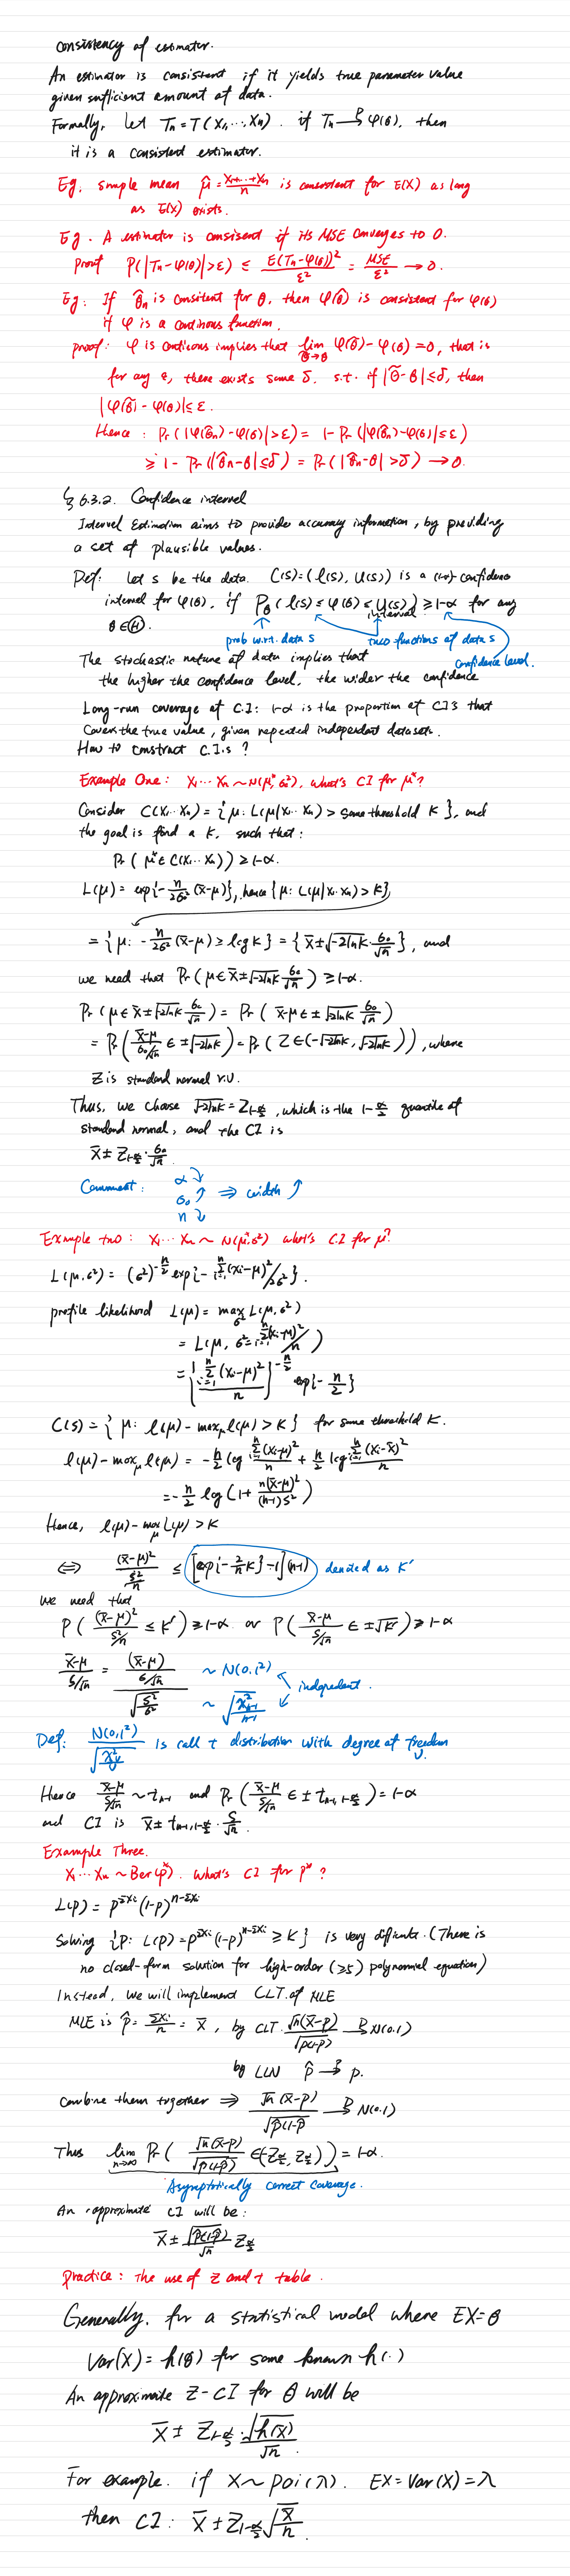 consistency of estimator.
An estimator is consistent if it yields true parameter value
given sufficient amount of data.
Formally, let Tn = T(X₁,⋯,Xn). if Tn →ᴾ φ(θ), then
it is a consistent estimator.
Eg. sample mean μ̂ = (X₁+⋯+Xn)/n is consistent for E(X) as long
as E(X) exists.
Eg. A estimator is consistent if its MSE converges to 0.
Proof P(|Tn-φ(θ)|>ε) ≤ E(Tn-φ(θ))²/ε² = MSE/ε² → 0.
Eg: If θ̂n is consitent for θ, then φ(θ̂) is consistent for φ(θ)
if φ is a continous function.
proof: φ is conticous implies that lim θ̂→θ φ(θ̂)-φ(θ)=0, that is
for any ε, there exists some δ. s.t. if |θ̂-θ|≤δ, then
|φ(θ̂)-φ(θ)|≤ε.
Hence: Pr(|φ(θ̂n)-φ(θ)|>ε) = 1-Pr(|φ(θ̂n)-φ(θ)|≤ε)
≥ 1-Pr(|θ̂n-θ|≤δ) = Pr(|θ̂n-θ|>δ) → 0.
§ 6.3.2. Confidence interval
Interval Estimation aims to provide accuracy information, by providing
a set of plausible values.
Def: let s be the data. C(s)=(l(s), u(s)) is a (1-α) confidence
interval for φ(θ), if Pθ(l(s)≤φ(θ)≤u(s)) ≥ 1-α for any
θ∈Ⓗ.
prob w.r.t. data s two functions of data s
confidence level.
The stochastic nature of data implies that
the higher the confidence level, the wider the confidence
interval.
Long-run coverage of C.I: 1-α is the proportion of CIs that
covers the true value, given repeated independent datasets.
How to construct C.I.s ?
Example One: X₁⋯Xn ~ N(μ*,σ₀²), what's CI for μ*?
Consider C(X₁⋯Xn) = {μ: L(μ|X₁⋯Xn) > some threshold K}, and
the goal is find a K, such that:
Pr(μ*∈C(X₁⋯Xn)) ≥ 1-α.
L(μ) = exp{-n/2σ₀² (x̄-μ)}, hence {μ: L(μ|X₁⋯Xn)>K}
= {μ: -n/2σ² (x̄-μ) ≥ log K} = {x̄±√-2lnK · σ₀/√n}, and
we need that Pr(μ∈x̄±√-2lnK σ₀/√n) ≥ 1-α.
Pr(μ∈x̄±√-2lnK σ₀/√n) = Pr(x̄-μ∈±√-2lnK σ₀/√n)
= Pr((x̄-μ)/(σ₀/√n) ∈ ±√-2lnK) = Pr(Z∈(-√-2lnK, √-2lnK)), where
Z is standard normal r.v.
Thus, we choose √-2lnK = Z₁₋α/₂, which is the 1-α/2 quantile of
standard normal, and the CI is
x̄ ± Z₁₋α/₂ · σ₀/√n.
Comment: α↘
σ₀↗ ⇒ width ↗
n↘
Example two: X₁⋯Xn ~ N(μ*,σ²) what's CI for μ*?
L(μ,σ²) = (σ²)^(-n/2) exp{-Σᵢ₌₁ⁿ(xᵢ-μ)²/2σ²}.
profile likelihood L(μ) = max σ² L(μ,σ²)
= L(μ, σ²=Σᵢ₌₁ⁿ(xᵢ-μ)²/n)
= {Σᵢ₌₁ⁿ(xᵢ-μ)²/n}^(-n/2) exp{-n/2}
C(s) = {μ: l(μ)-maxμ l(μ) > K} for some threshold K.
l(μ)-maxμ l(μ) = -n/2 log Σᵢ₌₁ⁿ(xᵢ-μ)²/n + n/2 log Σᵢ₌₁ⁿ(xᵢ-x̄)²/n
= -n/2 log(1+ n(x̄-μ)²/(n-1)s²)
Hence, l(μ)-maxμ L(μ) > K
⇔ (x̄-μ)²/(s²/n) ≤ [exp{-2/n K}-1](n-1) denoted as K'
we need that
P((x̄-μ)²/(s²/n) ≤ K') ≥ 1-α or P((x̄-μ)/(s/√n) ∈ ±√K') ≥ 1-α
(x̄-μ)/(s/√n) = ((x̄-μ)/(σ/√n))/√(s²/σ²) ~ N(0,1²) ~ √(χ²n-1/(n-1)) independent.
Def: N(0,1²)/√(χ²ν/ν) is call t distribution with degree of freedom ν.
Hence (x̄-μ)/(s/√n) ~ tn-1 and Pr((x̄-μ)/(s/√n) ∈ ± tn-1,1-α/2) = 1-α
and CI is x̄ ± tn-1,1-α/2 · s/√n.
Example Three.
X₁⋯Xn ~ Ber(p*). what's CI for p*?
L(p) = p^ΣXi (1-p)^(n-ΣXi)
Solving {p: L(p)=p^ΣXi (1-p)^(n-ΣXi) ≥ K} is very difficult. (There is
no closed-form solution for high-order (≥5) polynomial equation)
Instead, we will implement CLT of MLE
MLE is p̂ = ΣXi/n = x̄, by CLT. √n(x̄-p)/√p(1-p) →ᴰ N(0,1)
by LLN p̂ →ᴾ p.
combine them together ⇒ √n(x̄-p)/√p̂(1-p̂) →ᴰ N(0,1)
Thus lim n→∞ Pr(√n(x̄-p)/√p̂(1-p̂) ∈(Zα/2, Zα/2)) = 1-α.
Asymptotically correct coverage.
An approximate CI will be:
x̄ ± √p̂(1-p̂)/√n Zα/2
practice: the use of z and t table.
Generally, for a statistical model where EX=θ
Var(X) = h(θ) for some known h(·)
An approximate Z-CI for θ will be
x̄ ± Z₁₋α/₂ · √h(x̄)/√n.
For example. if X~poi(λ). EX=Var(X)=λ
then CI: x̄ ± Z₁₋α/₂ √(x̄/n).